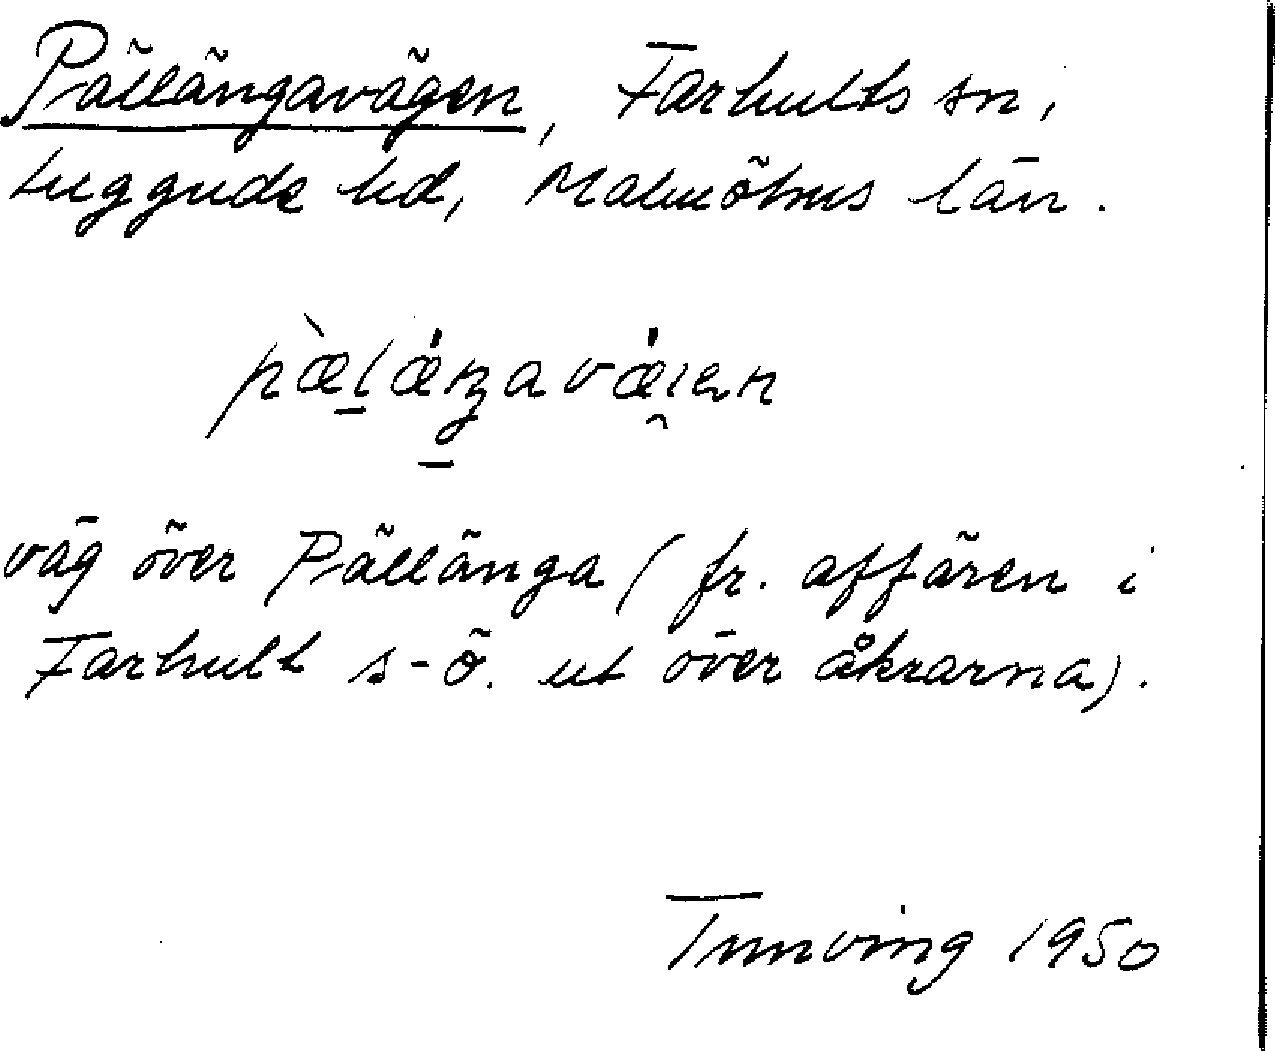 Pällängavägen, Farhults sn,
Luggude hd, Malmöhus län.
väg över Pällänga (fr. affären i
Farhult s-ö. ut över åkrarna).
1950